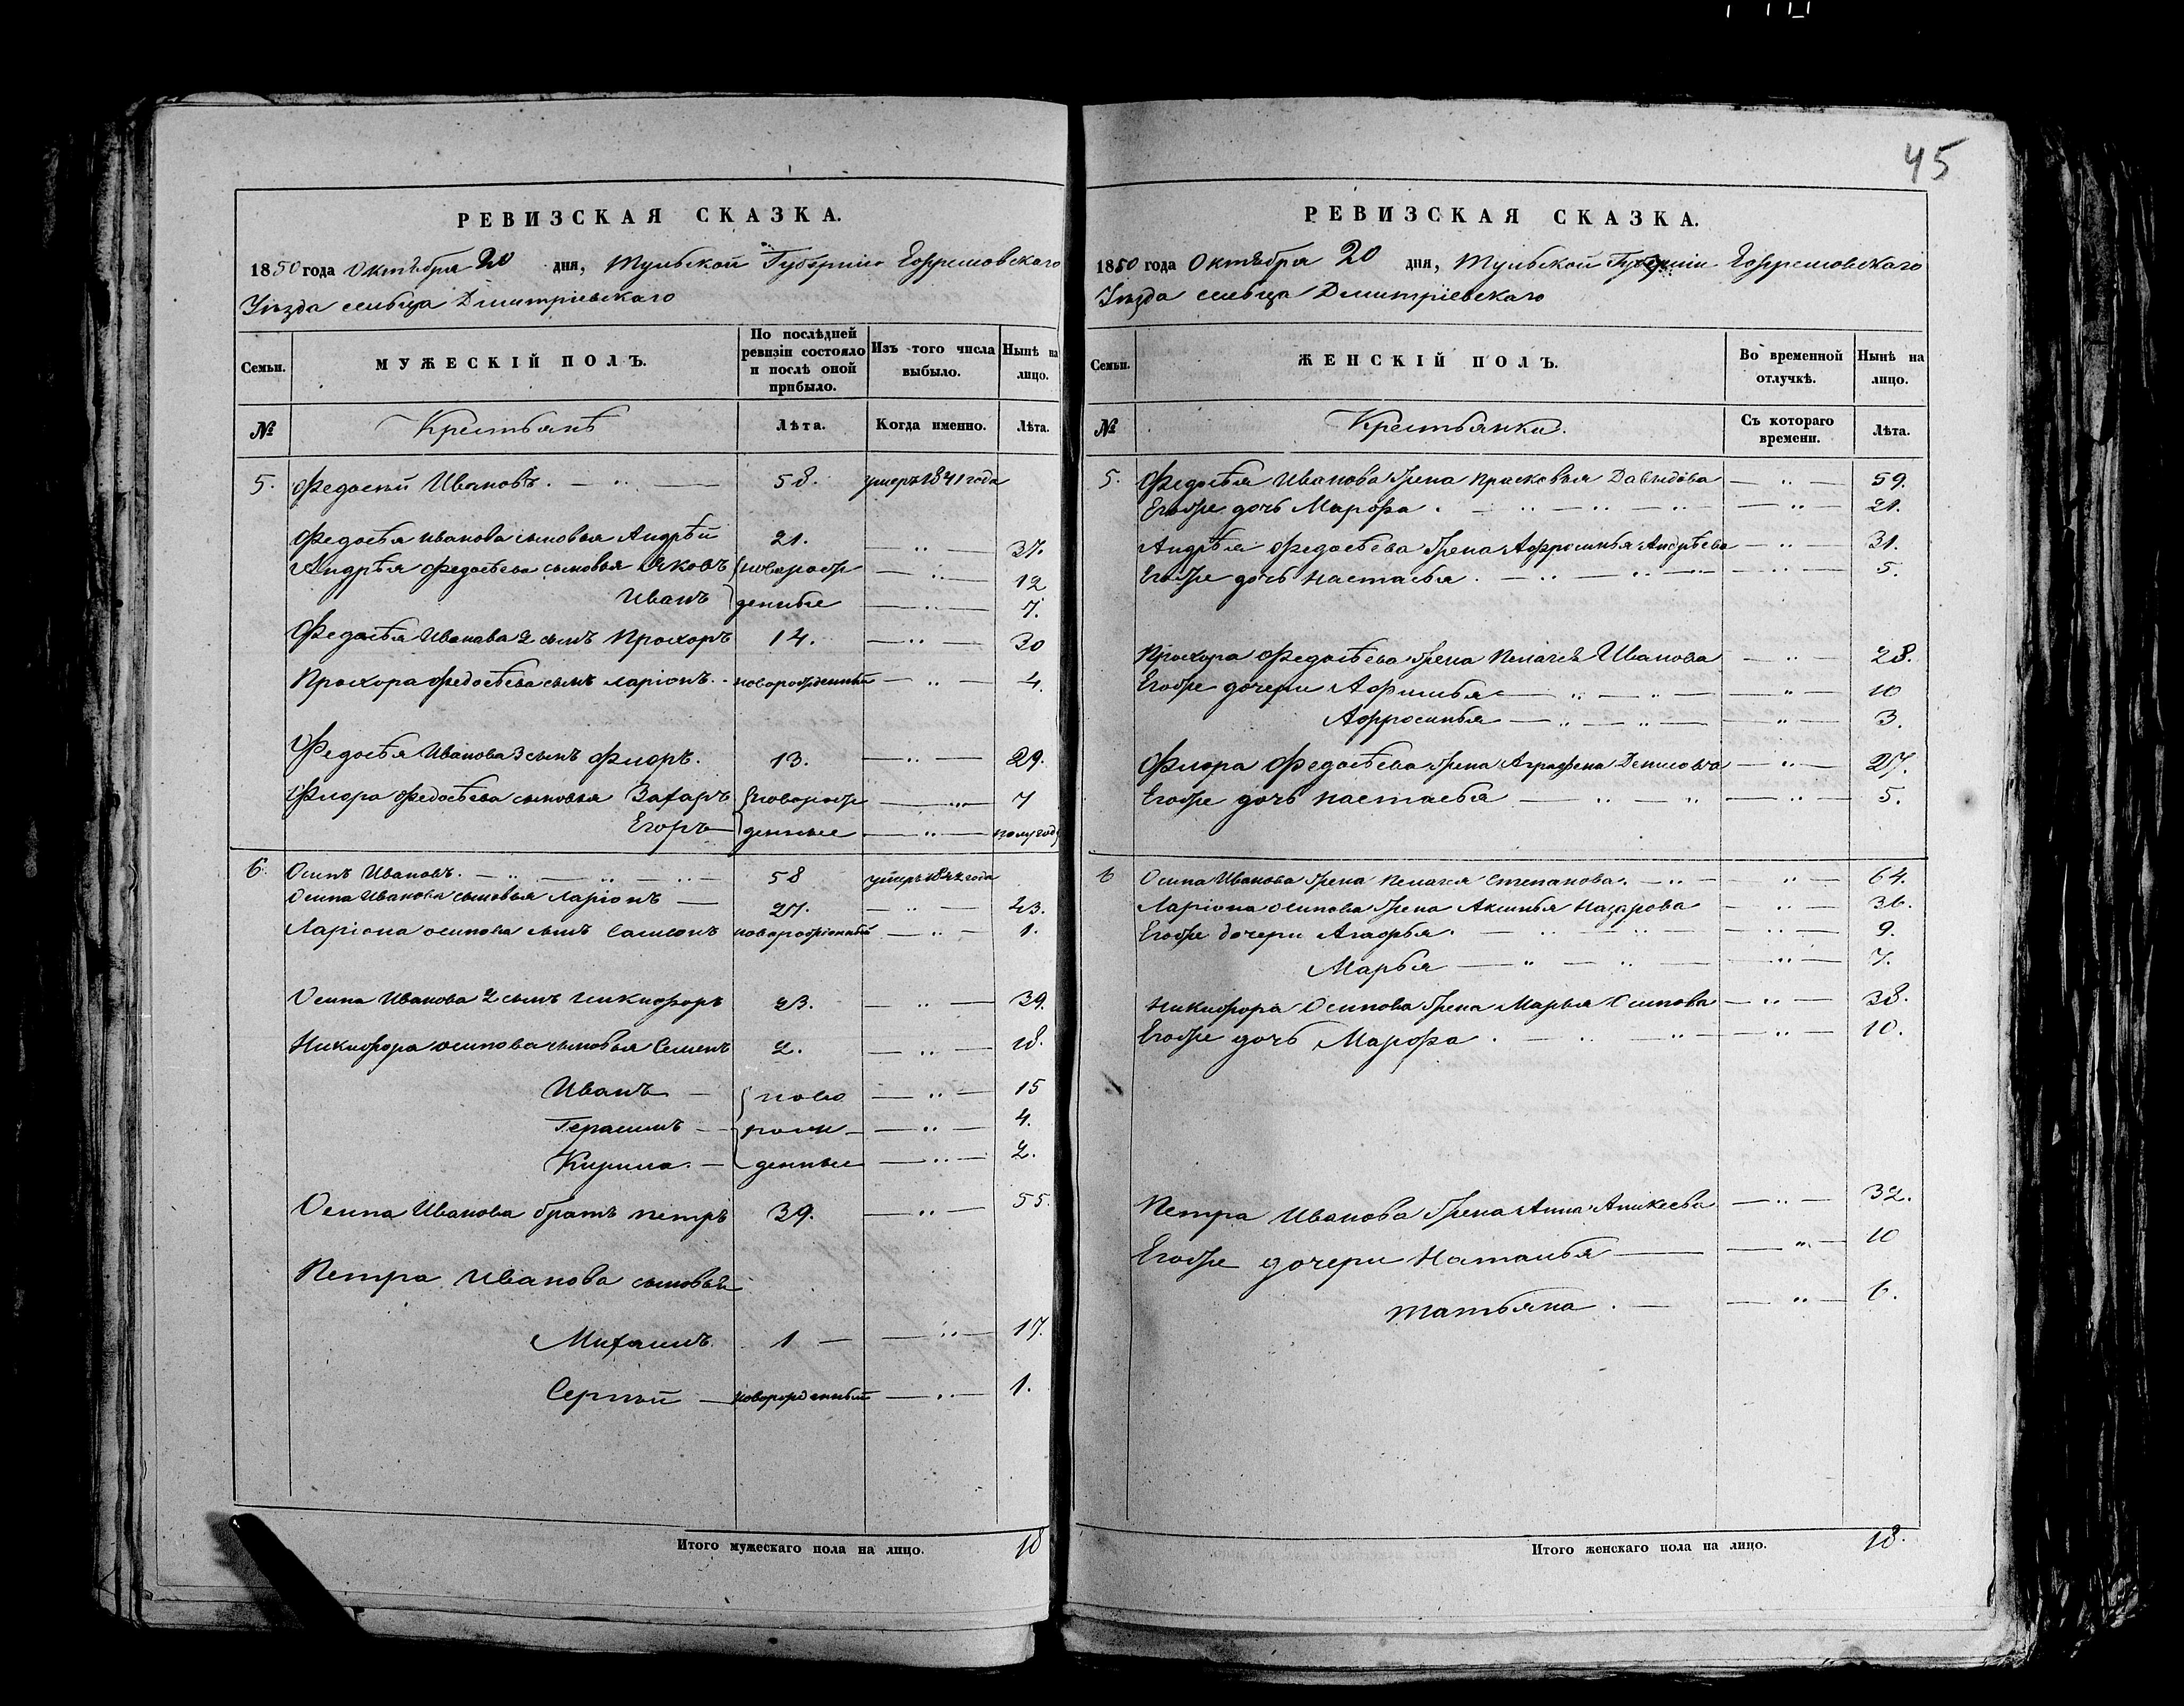 45
РЕВИЗСКАЯ СКАЗКА.
1850 года Октября 20 дня, Тульской Губерніи Ефремовскаго
Уѣзда сельца Дмитріевскаго
Семьи. МУЖЕСКІЙ ПОЛЪ. По послѣдней ревизіи состояло и послѣ оной прибыло. Изъ того числа выбыло. Нынѣ на лицо.
№ Крестьянѣ Лѣта. Когда именно. Лѣта.
5. Федосѣй Ивановъ. 58. умеръ 1841 года
Федосѣя Иванова сыновья Андрѣй 21. 37.
Андрѣя Федосѣева сыновья Яковъ новорож 12
Иванъ денные 7.
Федосѣя Иванова 2 сынъ Прохоръ 14. 30
Прохора Федосѣева сынъ Ларіонъ новорожденный 4.
Федосѣя Иванова 3 сынъ Флоръ. 13. 29.
Флора Федосѣева сыновья Захаръ новорож 7
Егоръ денные полугоду
6. Осипъ Ивановъ. 58 умеръ года
Осипа Иванова сыновья Ларіонъ 27. 43.
Ларіона Осипова сынъ Самсонъ новорожденный 1.
Осипа Иванова 2 сынъ Никифоръ 23. 39.
Никифора Осипова сыновья Семенъ 2. 18.
Иванъ ново 15
Герасимъ рож 4.
Кирила денные 2.
Осипа Иванова братъ Петръ 39. 55.
Петра Иванова сыновья
Михаилъ. 1 17.
Сергѣй новорожденный 1.
Итого мужескаго пола на лицо. 18
РЕВИЗСКАЯ СКАЗКА.
1850 года Октября 20 дня, Тульской Губерніи Ефремовскаго
Уѣзда сельца Дмитріевскаго
Семьи. ЖЕНСКІЙ ПОЛЪ. Во временной отлучкѣ. Нынѣ на лицо.
№ Крестьянки. Съ котораго времени. Лѣта.
5. Федосѣя Иванова жена Прасковья Давыдова 59.
Егожe дочь Марфа 21.
Андрѣя Федосѣева жена Афросинья Андрѣева 31.
Егоже дочь Настасья 5.
Прохора Федосѣева жена Пелагея Иванова 28.
Егоже дочери Афимья 10
Афросинья 3.
Флора Федосѣева жена Аграфена Денисова 27.
Егоже дочь Настасья 5.
6 Осипа Иванова жена Пелагея Степанова. 64.
Ларіона Осипова жена Аксинья Назарова 36.
Егоже дочери Агафья 9.
Марья 7.
Никифора Осипова жена Марья Осипова 38.
Егоже дочь Марфа 10.
Петра Иванова жена Анна Аникеева 32.
Егоже дочери Наталья 10
Татьяна 6.
Итого женскаго пола на лицо. 18.